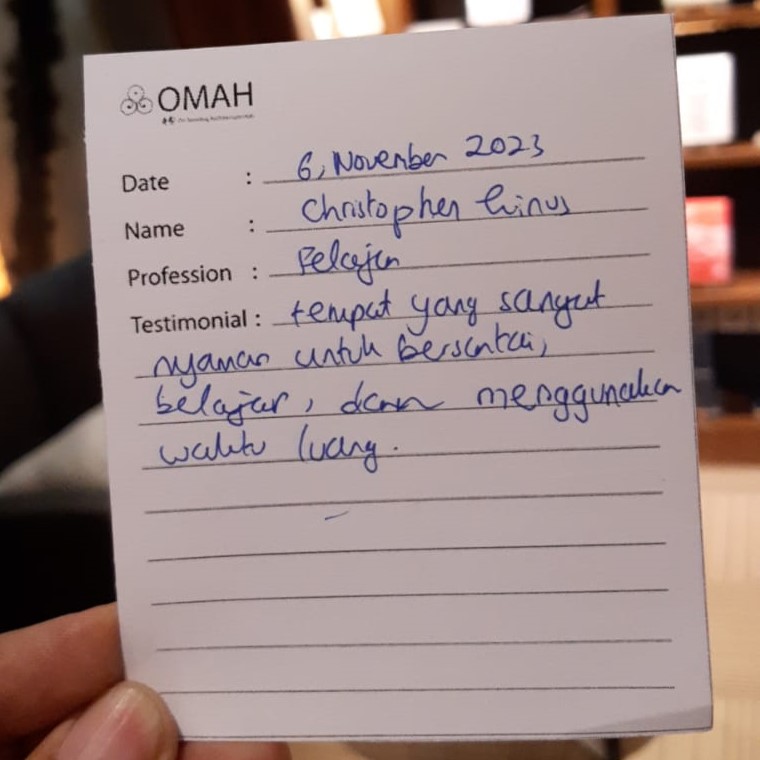 OMAH
Date : 6, November 2023
Name : Christopher
Profession : Pelajar
Testimonial : tempat yang sangat
nyaman untuk bersantai,
belajar, dan menggunakan
waktu luang.